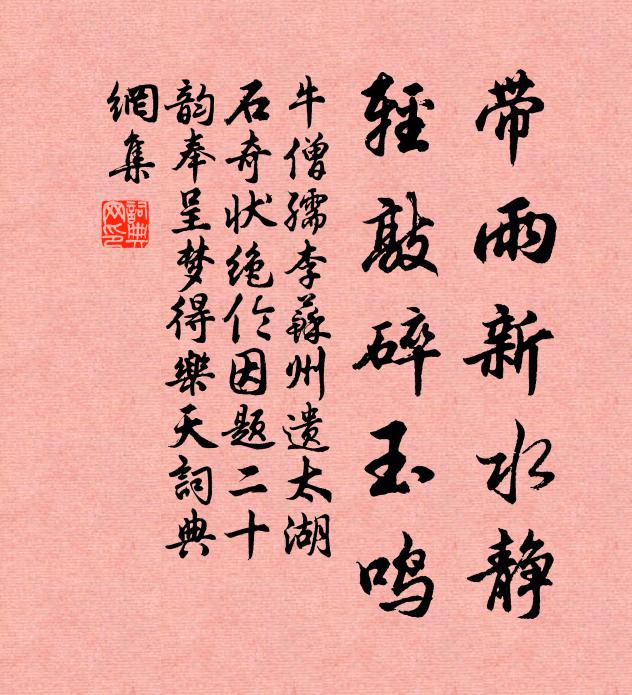 带雨新水静
轻敲碎玉鸣
牛僧孺李苏州遗太湖
石奇状绝伦因题二十
韵奉呈梦得樂天詞典
網集
詞典
网印